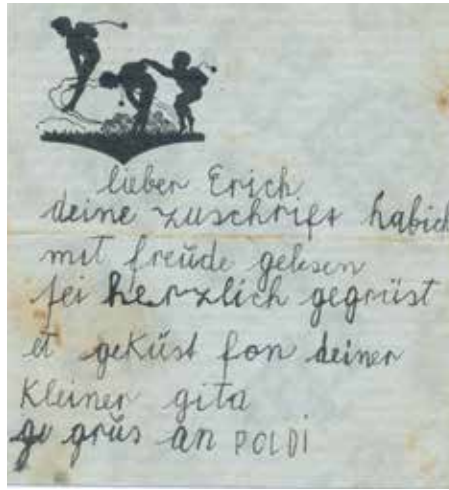 lieber Erich
deine zuschrift habich
mit freude gelesen
sei herzlich gegrüst
et geküst fon deiner
kleiner gita
ge grüs an POLDI